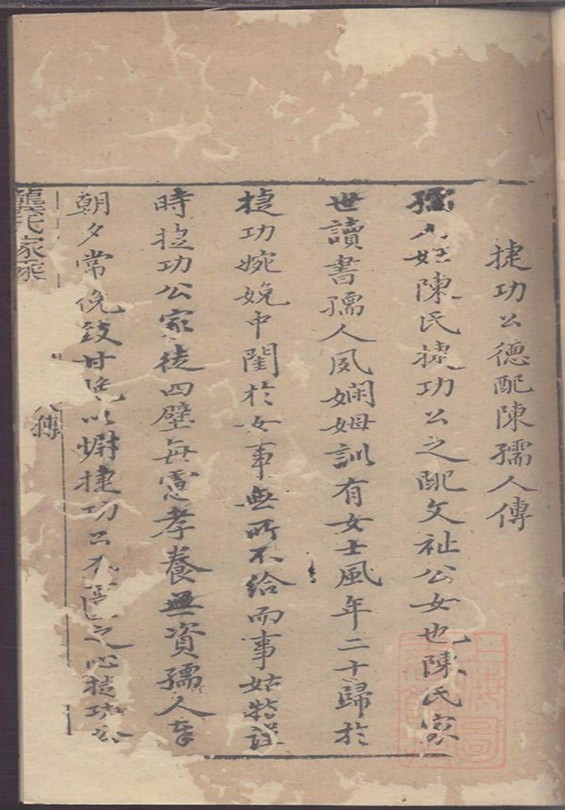 捷功公德配陳孺人傳
孺人姓陳氏捷功公之配文祉公女也陳氏家
世讀書孺人夙嫻姆訓有女士風年二十歸於
捷功婉娩中閨於女事無所不給而事姑特謹
時捷功公家徒四壁每憲孝養無資孺人
朝夕常俛致甘以捷功公之心捷功公
龔氏家乘
傳